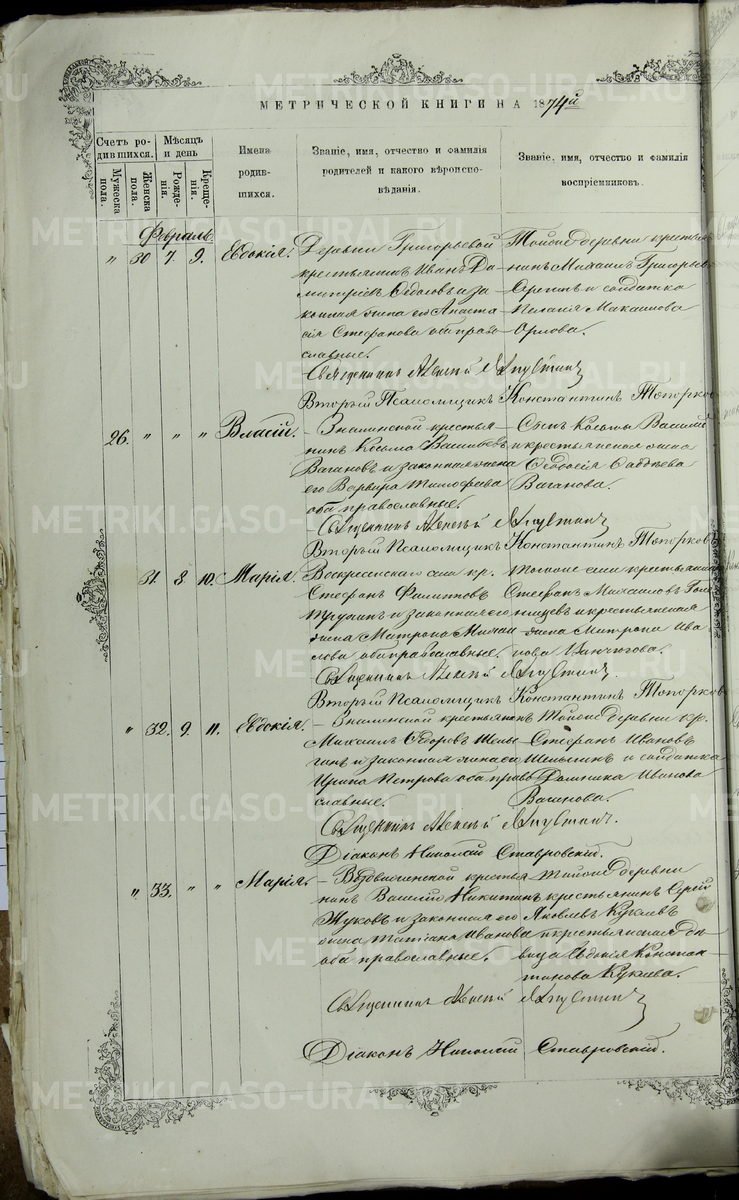 МЕТРИЧЕСКОЙ КНИГИ НА 1874й
Счетъ родившихся.
Мужеска пола.
Женска пола.
Мѣсяцъ и день
Рожденія.
Крещенія.
Имена родившихся.
Званіе, имя, отчество и фамилія родителей и какого вѣроисповѣданія.
Званіе, имя, отчество и фамилія воспріемниковъ.
Февраль.
" 30 7. 9. Евдокія.
Деревни Григорьевой
крестьянинъ Иванъ Ди-
митріевъ и за-
конная жена его Анаста-
сія Стефанова оба право-
славные.
Тойже деревни крестья-
нинъ Михаилъ Григорьевъ
и солдатка
Пелагія Максимова
Орлова.
Священникъ Алексій
Вторый Псаломщикъ Константинъ Топорковъ
26. " " " Власій.
Знаменской крестья-
нинъ Косьма Васильевъ
Вагановъ и законная жена
его Варвара Тимофеева
оба православные.
Сынъ Косьмы Василій
и крестьянская жена
Феодосія Фаддѣева
Ваганова.
Священникъ Алексій
Вторый Псаломщикъ Константинъ Топорковъ
31. 8. 10. Марія.
Воскресенскаго села кр.
Стефанъ Филипповъ
и законная его
жена Митродора
оба православные.
Тогоже села крестьянинъ
Стефанъ Михаиловъ
и крестьянская
жена
Священникъ Алексій
Вторый Псаломщикъ Константинъ Топорковъ
" 32. 9. 11. Евдокія.
Знаменской крестьянинъ
Михаилъ Ѳедоровъ
и законная жена его
Ирина Петрова оба право-
славные.
Тойже деревни кр.
Стефанъ Ивановъ
и солдатка
Домника Иванова
Ваганова.
Священникъ Алексій
Діаконъ Николай Ставровскій.
" 33. " " Марія.
Воздвиженской крестья-
нинъ Василій Никитинъ
Жуковъ и законная его
жена Татіана Иванова
оба православные.
Тойже деревни
крестьянинъ Сергій
Яковлевъ Кукаевъ
и крестьянская дѣ-
вица Евдокія Констан-
тинова Кукаева.
Священникъ Алексій
Діаконъ Николай Ставровскій.
METRIKI.GASO-URAL.RU